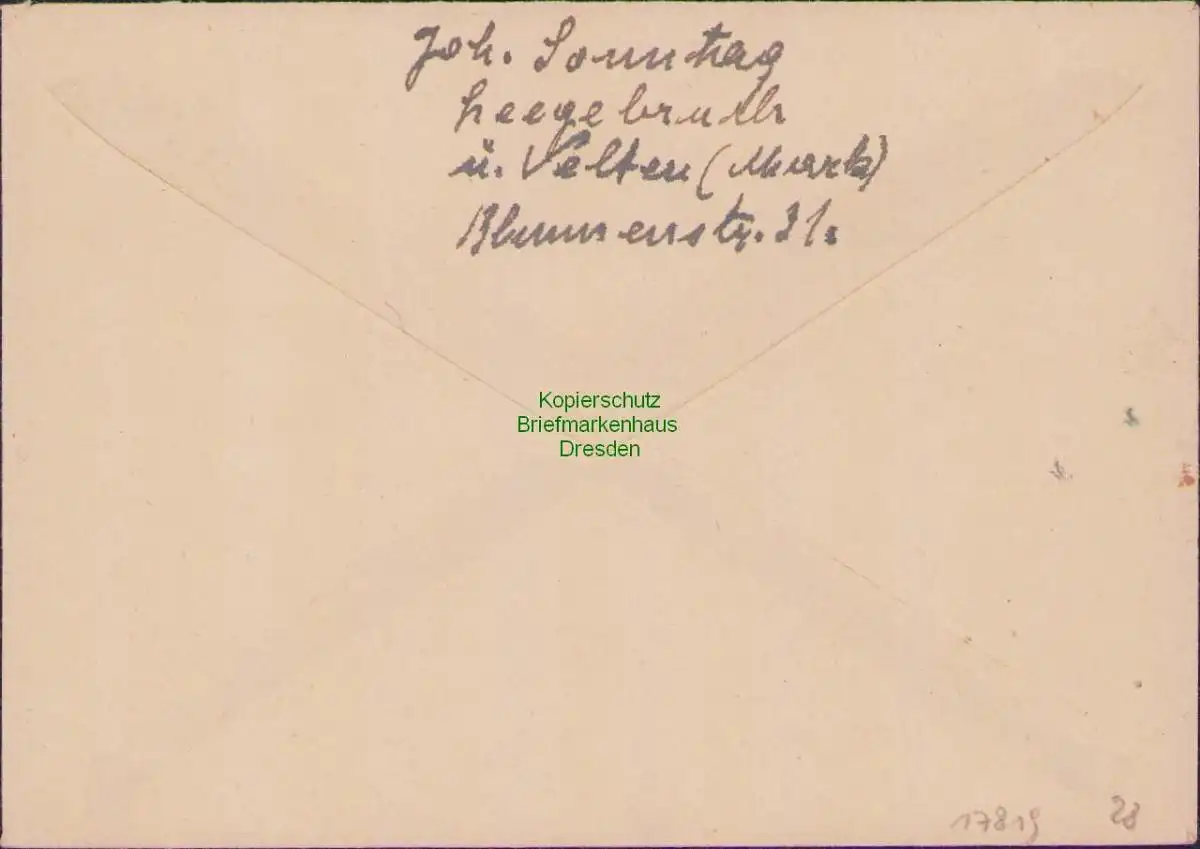 Joh. Sonntag
Leegebruch
ü. Velten (Mark)
Blumenstr. 31.
Kopierschutz
Briefmarkenhaus
Dresden
17819 28